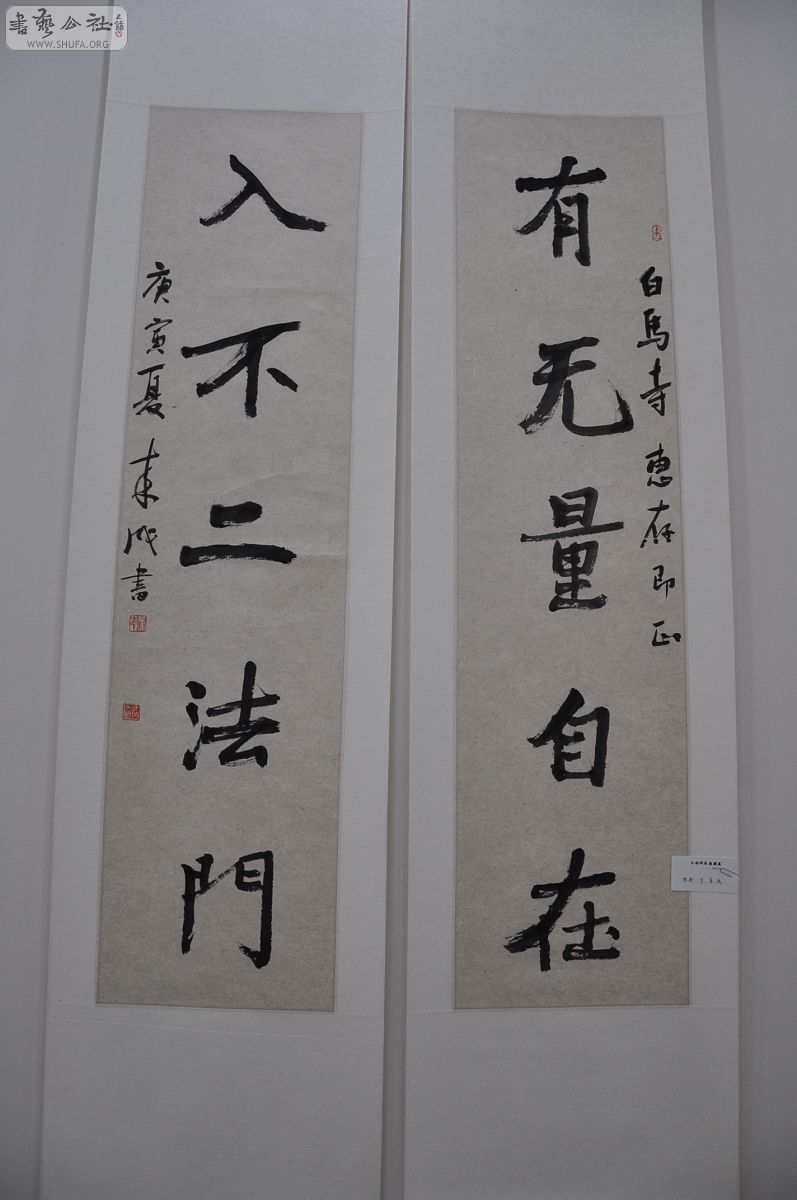 書藝公社
WWW.SHUFA.ORG
有无量自在
白馬寺惠存即正
入不二法門
庚寅夏來成書